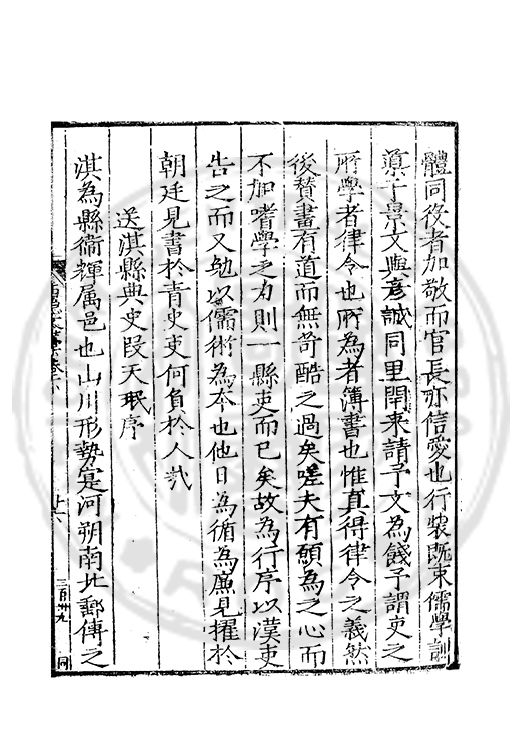 體同役者加敬而官長亦信愛也行裝既束儒學訓
滇子景文與彥誠同里閈来請予文為餞予謂吏之
所學者律令也所為者簿書也惟真得律令之義然
後賛畫有道而無苛酷之過矣嗟夫有願為之心而
不加嗜學之力則一縣吏而已矣故為行序以漢吏
告之而又勉以儒術為本也他日為循為廉見擢於
朝廷見書於青史吏何負於人㢤
送淇縣典史段天珉序
淇為縣衞輝属邑也山川形勢寔河朔南北郵傳之
三百卅九
同